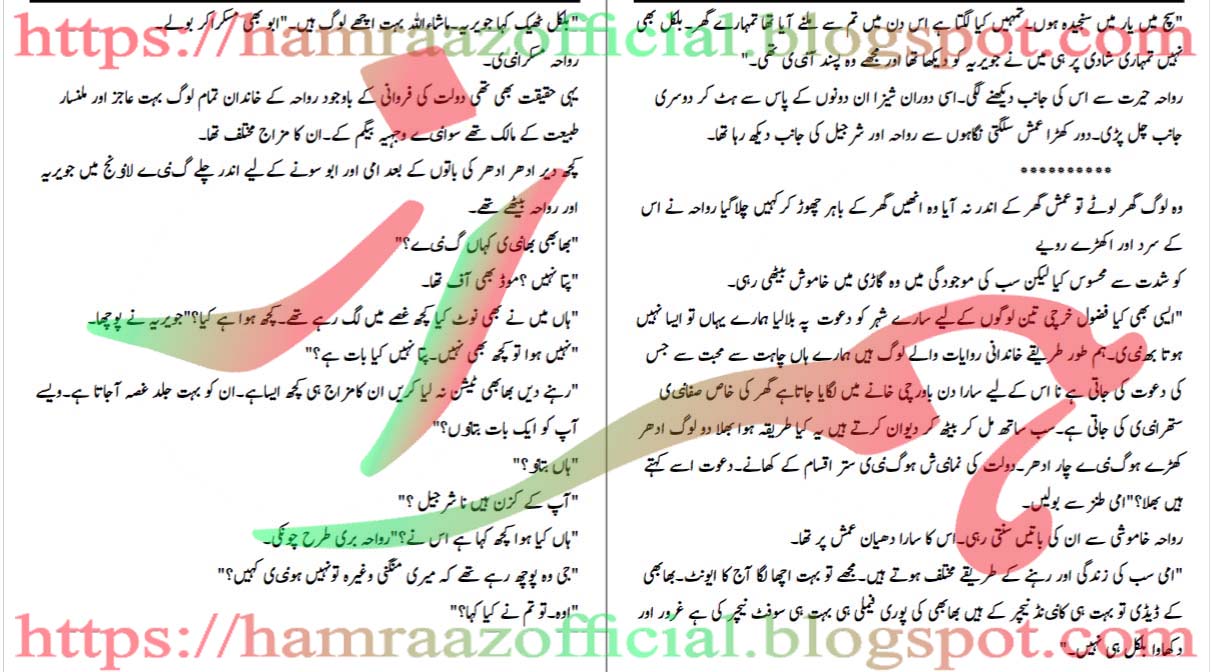 https://hamraazofficial.blogspot.com
"سچ میں یار میں سنجیدہ ہوں۔تمہیں کیا لگتا ہے اس دن میں تم سے ملنے آیا تھا تمہارے گھر۔بلکل بھی
نہیں تمہاری شادی پر ہی میں نے جویریہ کو دیکھا تھا اور مجھے وہ پسند آئی تھی۔"
رواحہ حیرت سے اس کی جانب دیکھنے لگی۔اسی دوران شیزا ان دونوں کے پاس سے ہٹ کر دوسری
جانب چل پڑی۔دور کھڑا عمش سلگتی نگاہوں سے رواحہ اور شرجیل کی جانب دیکھ رہا تھا۔
**********
وہ لوگ گھر لوٹے تو عمش گھر کے اندر نہ آیا وہ انھیں گھر کے باہر چھوڑ کر کہیں چلا گیا رواحہ نے اس
کے سرد اور اکھڑے رویے
کو شدت سے محسوس کیا لیکن سب کی موجودگی میں وہ گاڑی میں خاموش بیٹھی رہی۔
"ایسی بھی کیا فضول خرچی تین لوگوں کے لیے سارے شہر کو دعوت پہ بلالیا ہمارے یہاں تو ایسا نہیں
ہوتا بھئی۔ہم طور طریقے خاندانی روایات والے لوگ ہیں ہمارے ہاں چاہت سے محبت سے جس
کی دعوت کی جاتی ہے نا اس کے لیے سارا دن باورچی خانے میں لگایا جاتا ہے گھر کی خاص صفائی
ستھرائی کی جاتی ہے۔سب ساتھ مل کر بیٹھ کر دیوان کرتے ہیں یہ کیا طریقہ ہوا بھلا دو لوگ ادھر
کھڑے ہوگئے چار ادھر۔دولت کی نمائش ہوگئی ستر اقسام کے کھانے۔دعوت اسے کہتے
ہیں بھلا؟"امی طنز سے بولیں۔
رواحہ خاموشی سے ان کی باتیں سنتی رہی۔اس کا سارا دھیان عمش پر تھا۔
"امی سب کی زندگی اور رہنے کے طریقے مختلف ہوتے ہیں۔مجھے تو بہت اچھا لگا آج کا ایونٹ۔بھابھی
کے ڈیڈی تو بہت ہی کائنڈ نیچر کے ہیں بھابھی کی پوری فیملی ہی بہت ہی سوفٹ نیچر کی ہے غرور اور
دکھاوا بلکل ہی نہیں۔"
"بلکل ٹھیک کہا جویریہ۔ماشاءاللہ بہت اچھے لوگ ہیں۔"ابو بھی مسکرا کر بولے۔
رواحہ مسکرائی۔
یہی حقیقت بھی تھی دولت کی فروانی کے باوجود رواحہ کے خاندان تمام لوگ بہت عاجز اور ملنسار
طبیعت کے مالک تھے سوائے وجہیہ بیگم کے۔ان کا مزاج مختلف تھا۔
کچھ دیر ادھر ادھر کی باتوں کے بعد امی اور ابو سونے کے لیے اندر چلے گئے لاؤنج میں جویریہ
اور رواحہ بیٹھے تھے۔
"بھابھی بھائی کہاں گئے؟"
"پتا نہیں ؟موڈ بھی آف تھا۔
"ہاں میں نے بھی نوٹ کیا کچھ غصے میں لگ رہے تھے۔کچھ ہوا ہے کیا؟"جویریہ نے پوچھا۔
"نہیں ہوا تو کچھ بھی نہیں۔پتا نہیں کیا بات ہے؟"
"رہنے دیں بھابھی ٹینشن نہ لیا کریں ان کا مزاج ہی کچھ ایسا ہے۔ان کو بہت جلد غصہ آجاتا ہے۔ویسے
آپ کو ایک بات بتاؤں؟"
"ہاں بتاؤ؟"
"آپ کے کزن ہیں نا شرجیل ؟"
"ہاں کیا ہوا کچھ کہا ہے اس نے؟"رواحہ بری طرح چونکی۔
"جی وہ پوچھ رہے تھے کہ میری منگنی وغیرہ تو نہیں ہوئی کہیں؟"
"اوہ۔تو تم نے کیا کہا؟"
https://hamraazofficial.blogspot.com